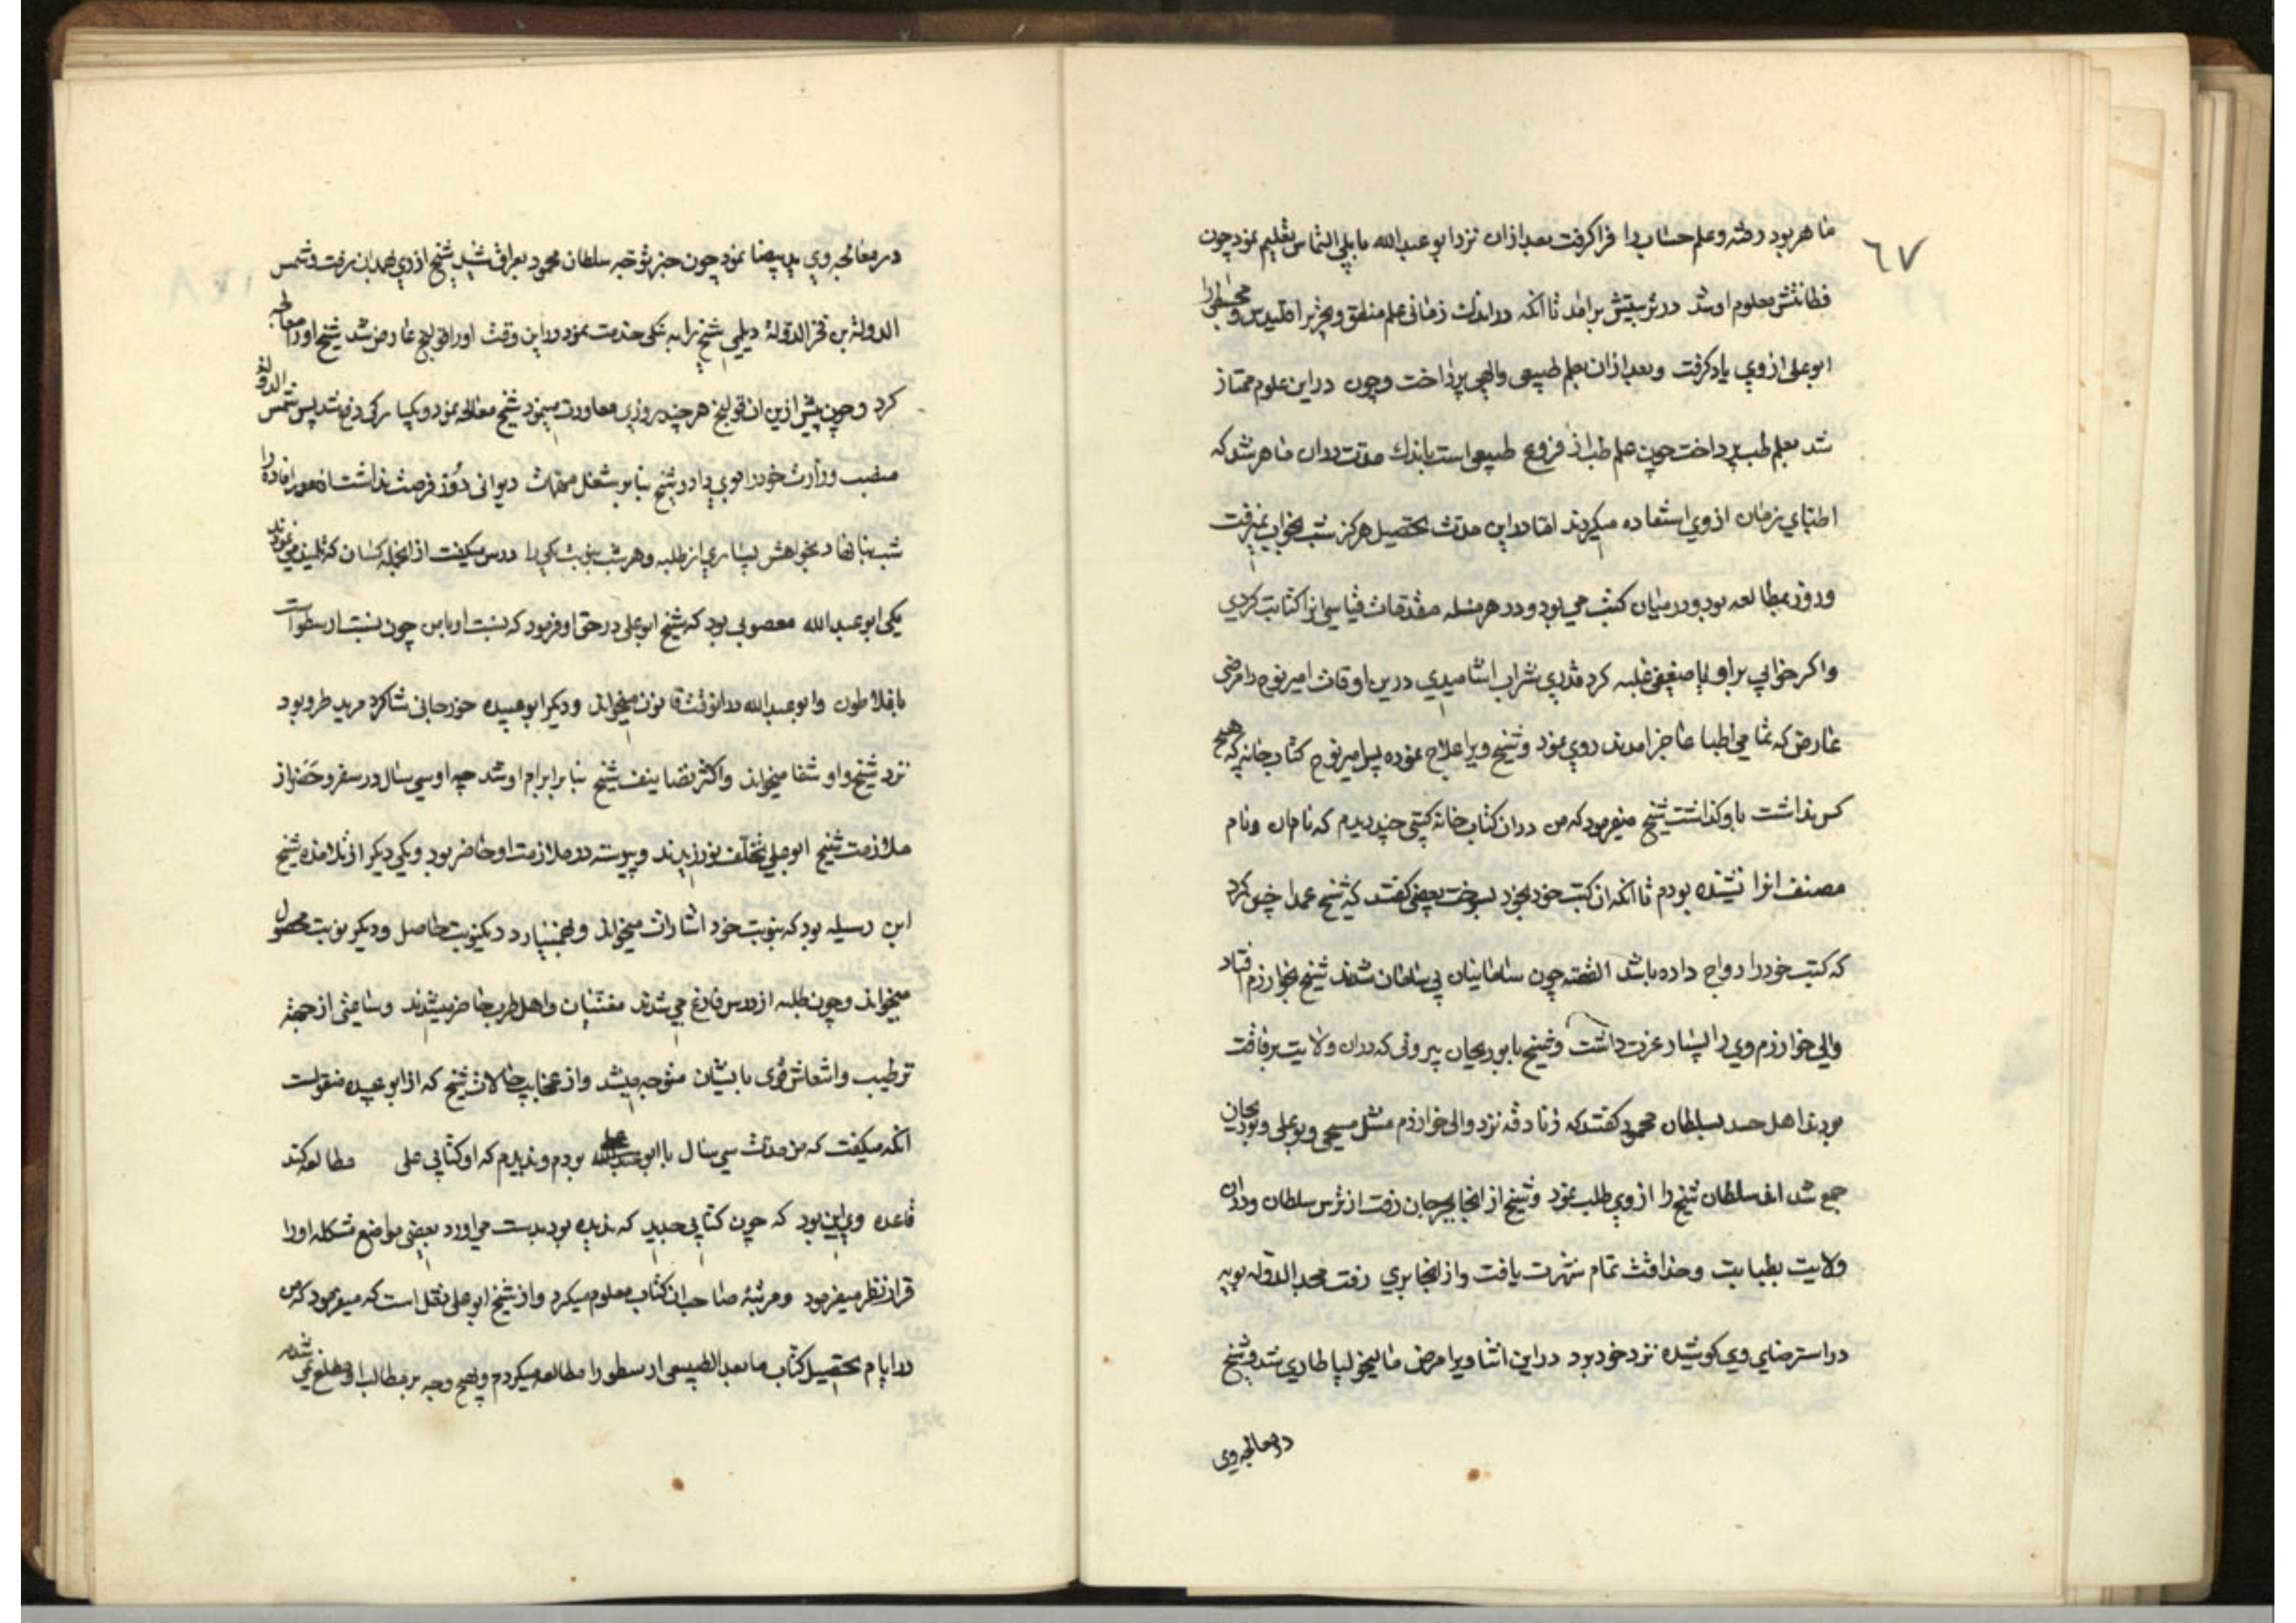 ماهر بود رفته و علم حساب را فراگرفت بعد ازان نزد ابو عبدالله بابلی التماس تعلیم نمود چون
٦٧
فطانتش معلوم او شد در تربیتش برامد تا انکه در اندک زمانی علم منطق و تحریر اقلیدس و مجسطی را
ابو علی از وی یاد کرفت و بعد ازان بعلم طبیعی و الهی پرداخت و چون در این علوم ممتاز
شد بعلم طب پرداخت چون علم طب از فروع طبیعی است باندک مدت دران ماهر شد که
اطبای زمان از وی استفاده میکردند اما در این مدت تحصیل هرکز شب بخواب نمیرفت
و روز بمطالعه بود و در میان کتب می بود و در هر مسله مقدمات قیاسی انرا کتابت کردی
و اکر خوابی بر او یا ضعیفی غلبه کرد قدری شراب اشامیدی درین اوقات امیر نوح را مرضی
عارض که تمامی اطبا عاجز امدند روی نمود و شیخ ویرا علاج نموده پس امیر نوح کتاب خانه که هیچ
کس نداشت باو کذاشت شیخ میفرمود که من دران کتاب خانه کتبی چند دیدم که نام ان و نام
مصنف انرا نشنیده بودم تا انکه ان کتب خود بخود بسوخت بعضی کفتند که شیخ عمدا چنین کرد
که کتب خود را رواج داده باشد القصه چون سامانیان بی سامان شدند شیخ بخوارزم افتاد
والی خوارزم وی را بسیار عزت داشت و شیخ با بوریحان بیرونی که دران ولایت برفاقت
بودند اهل حسد بسلطان محمود کفتند که زنادقه نزد والی خوارزم مثل مسیحی و بوعلی و بوریحان
جمع شده اند سلطان شیخ را از وی طلب نمود و شیخ از انجا بجرجان رفت از ترس سلطان و دران
ولایت بطبابت و حذاقت تمام شهرت یافت و از انجا بری رفت مجد الدوله بویه
در استرضای وی کوشیده نزد خود برد در این اثنا ویرا مرض مالیخولیا طاری شد و شیخ
در معالجه وی
در معالجه وی ید بیضا نمود چون خبر توجه سلطان محمود بعراق شنید شیخ از ری بهمدان رفت و شمس
الدوله بن فخر الدوله دیلمی شیخ را به نیکی خدمت نمود در این وقت او را قولنج عارض شد شیخ او را معالجه
کرد و چون پیش ازین ان قولنج هر چند روزی معاودت مینمود شیخ معالجه نمود و یکبارکی دفع شد پس شمس الدوله
منصب وزارت خود را بوی داد و شیخ بنابر شغل مهمات دیوانی روز فرصت نداشت امور افاده را
شب بنا نهاد بخواهش بسیاری از طلبه و هر شب بنوبت یکی را درس میکفت از انجمله کسان که تلمیذ می نمودند
یکی ابو عبدالله معصومی بود که شیخ ابو علی در حق او فرمود که نسبت او بامن چون نسبت ارسطو است
بافلاطون و ابو عبدالله در انوقت قانون میخواند و دیکر ابو عبیده جوزجانی شاکرد مرید طرو بود
نزد شیخ و او شفا میخواند و اکثر تصانیف شیخ بنابر ابرام او شد چه او سی سال در سفر و حضر از
ملازمت شیخ ابو علی تخلف نورزیدند و پیوسته در ملازمت او حاضر بود و یکی دیکر از تلامذه شیخ
ابن رسیله بود که بنوبت خود اشارات میخواند و بهمنیار در دیکر نوبت حاصل و دیکر نوبت محصول
میخواند و چون طلبه از درس فارغ می شدند مغنیان و اهل طرب حاضر میشدند و ساعتی از جهة
ترطیب و انتعاش قوی با یشان متوجه میشد و از عجایب حالات شیخ که از ابو عبیده منقولست
انکه میکفت که من مدت سی سال با ابو علی بودم و ندیدم که او کتابی علی مطالعه کند
قاعده وی این بود که چون کتابی جدید که ندیده بود بدست می اورد بعضی مواضع مشکله او را
قرار نظر میفرمود و مرتبه صاحب ان کتاب معلوم میکرد و از شیخ ابو علی نقل است که میفرمود که من
در ایام تحصیل کتاب مابعد الطبیعی ارسطو را مطالعه میکردم و بهیچ وجه بر مطالب او مطلع نمی شدم